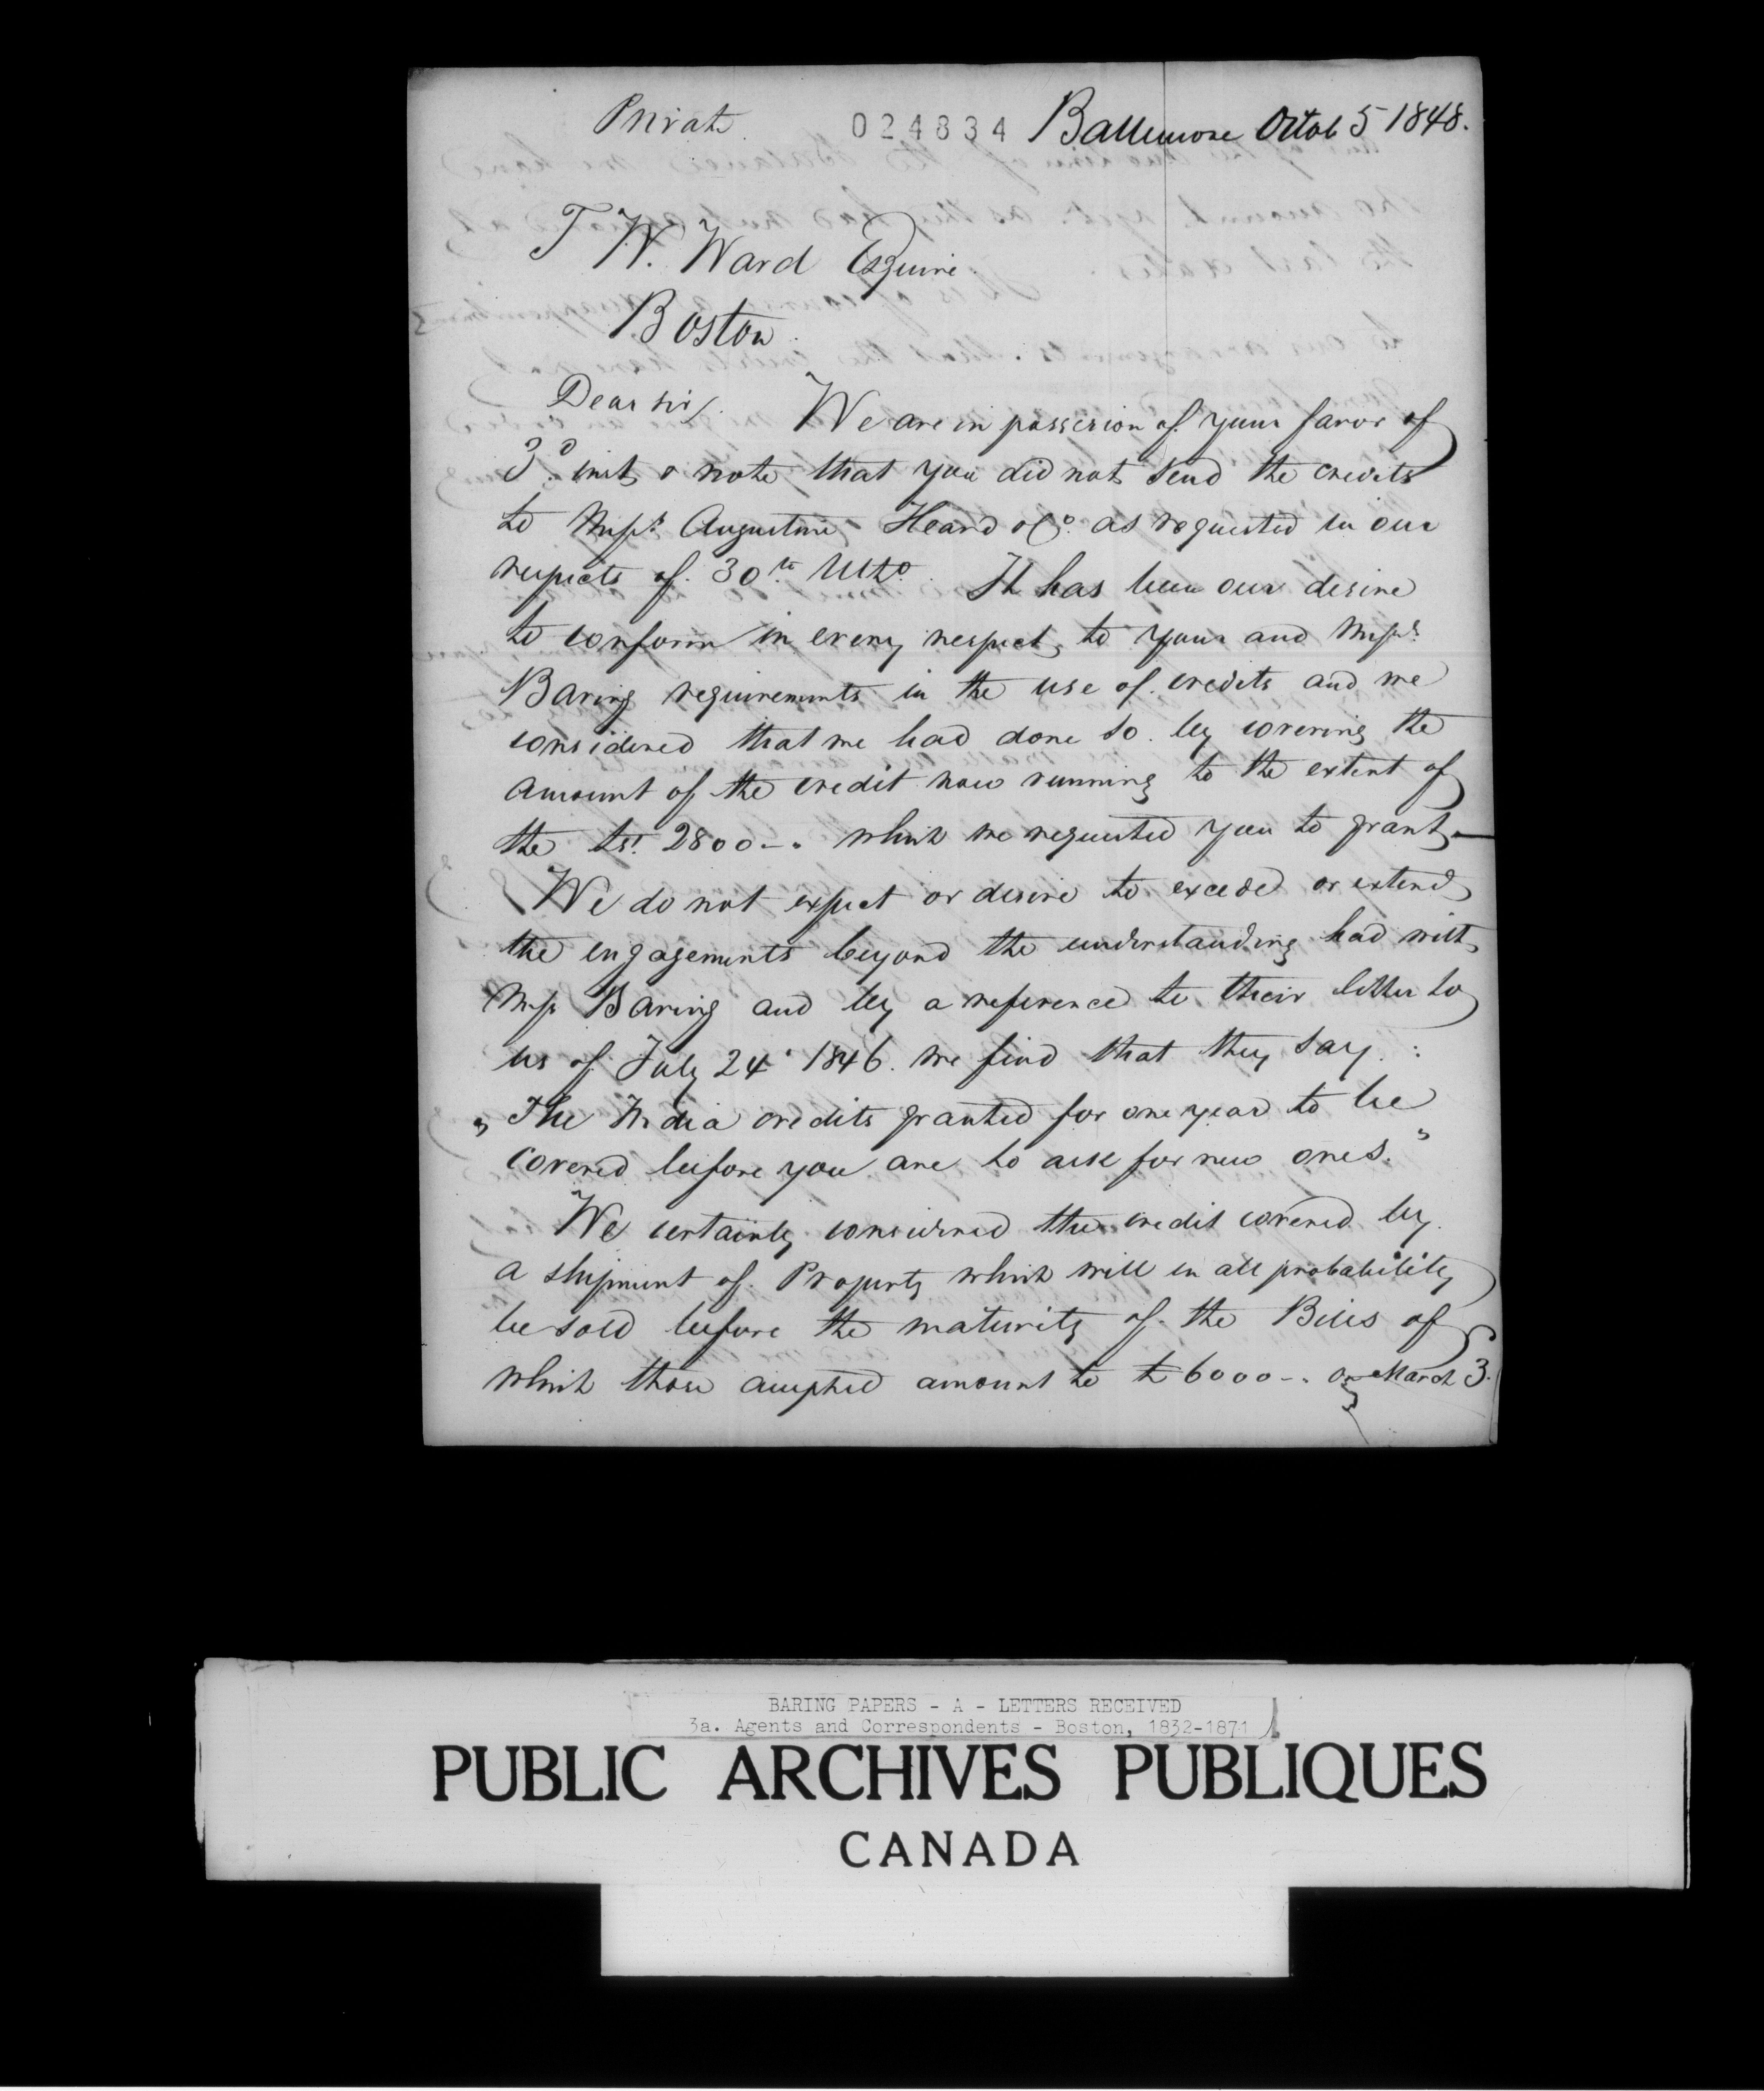 Private. 024834 Baltimore Octob 5 1848.
T W. Ward Esquire.
Boston.
Dear Sir/. We are in possesion of your favor of
3d. inst & note that you did not send the credits
to Mess. Augustine Heard & Co. as requested in our
respects of 30th. Ulto. It has been our desire
to conform in every respect to your and Messs
Baring requirements in the use of credits and we
considered that we had done so by covering the
amount of the credit now running to the extent of
the 2800-. which we requested you to grant.
We do not expect or desire to excede or extend
the engagements beyond the understanding had with
Mess Baring and by a reference to their letter to
us of July 24 1846. we find that they say :
"The India credits granted for one year to be
Covered before you are to ask for new ones."
We certainly considered the credit covered by
a shipment of Property which will in all probability
be sold before the maturity of the Bills of
which those accepted amount to £ 6000-. March 3.
BARING PAPERS - A - LETTERS RECEIVED
3a. Agents and Correspondents - Boston, 1832-1871
PUBLIC ARCHIVES PUBLIQUES
CANADA